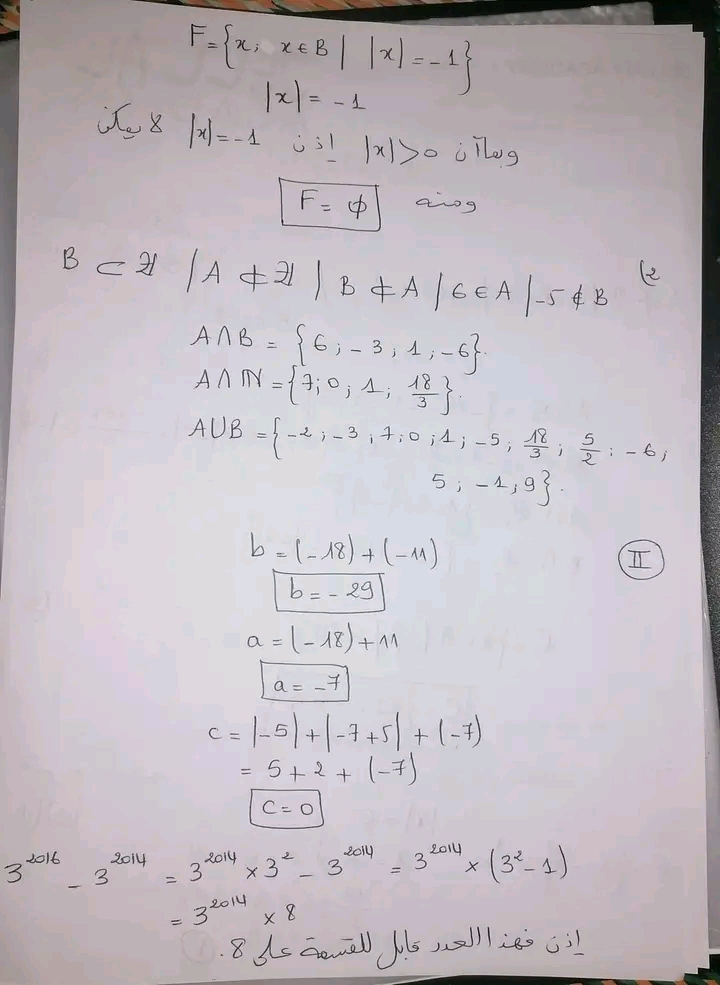 F = {x ; x ∈ B | |x| = -1}
|x| = -1
وبما أن |x|>0 إذن |x| = -1 لا يمكن
ومنه F = ϕ
2) B ⊂ ℤ | A ⊄ ℤ | B ⊄ A | 6 ∈ A | -5 ∉ B
A∩B = {6 ; -3 ; 1 ; -6}.
A∩ℕ = {7 ; 0 ; 1 ; 18/3}.
A∪B = {-2 ; -3 ; 7 ; 0 ; 1 ; -5 ; 18/3 ; 5/2 ; -6 ;
5 ; -1 ; 9}.
II b = (-18) + (-11)
b = -29
a = (-18) + 11
a = -7
c = |-5| + |-7+5| + (-7)
= 5 + 2 + (-7)
C = 0
3^2016 - 3^2014 = 3^2014 × 3^2 - 3^2014 = 3^2014 × (3^2 - 1)
= 3^2014 × 8
إذن فهذا العدد قابل للقسمة على 8.